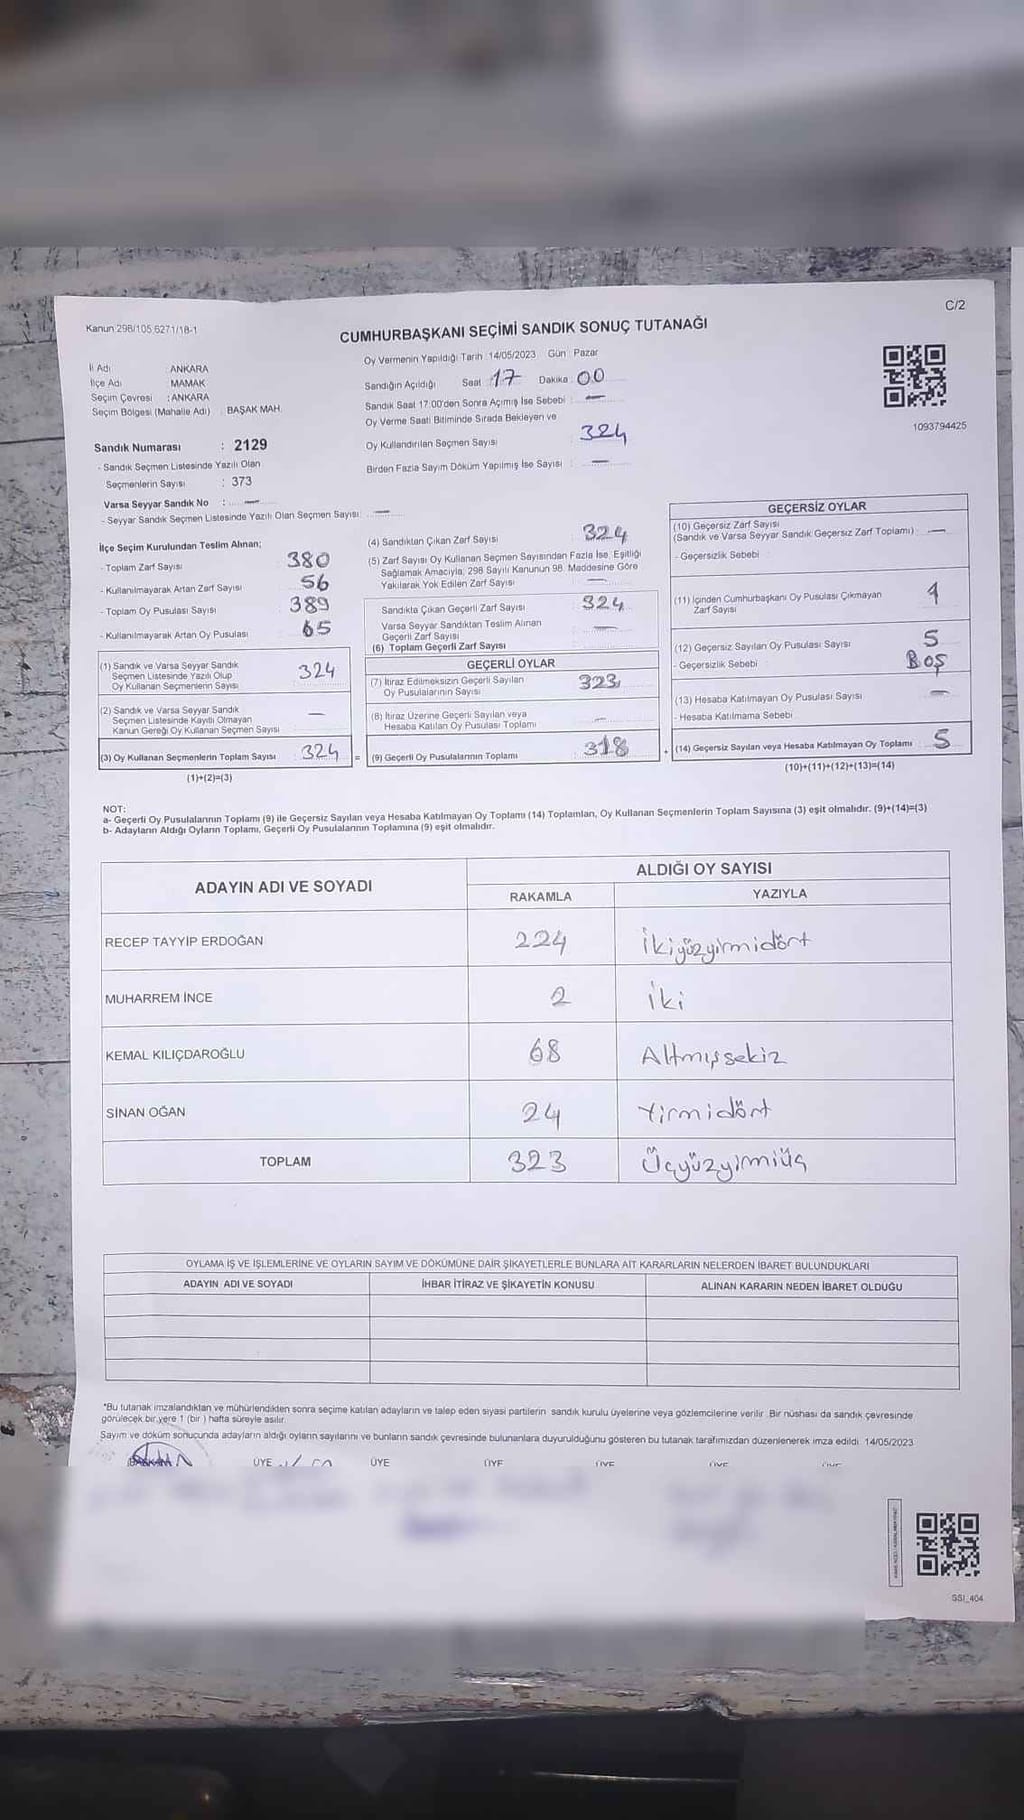 C/2
Kanun 298/105,6271/18-1
CUMHURBAŞKANI SEÇİMİ SANDIK SONUÇ TUTANAĞI
İl Adı ANKARA
İlçe Adı MAMAK
Seçim Çevresi : ANKARA
Seçim Bölgesi (Mahalle Adı) BAŞAK MAH.
Oy Vermenin Yapıldığı Tarih 14/05/2023 Gün Pazar
Sandığın Açıldığı Saat 17 Dakika : 00
Sandık Saat 17:00'den Sonra Açımış İse Sebebi : —
Oy Verme Saati Bitiminde Sırada Bekleyen ve
Oy Kullandırılan Seçmen Sayısı 324
Birden Fazla Sayım Döküm Yapılmış İse Sayısı : —
1093794425
Sandık Numarası : 2129
- Sandık Seçmen Listesinde Yazılı Olan
Seçmenlerin Sayısı : 373
Varsa Seyyar Sandık No : —
- Seyyar Sandık Seçmen Listesinde Yazılı Olan Seçmen Sayısı: —
İlçe Seçim Kurulundan Teslim Alınan;
- Toplam Zarf Sayısı 380
- Kullanılmayarak Artan Zarf Sayısı 56
- Toplam Oy Pusulası Sayısı 389
- Kullanılmayarak Artan Oy Pusulası 65
(1) Sandık ve Varsa Seyyar Sandık
Seçmen Listesinde Yazılı Olup
Oy Kullanan Seçmenlerin Sayısı 324
(2) Sandık ve Varsa Seyyar Sandık
Seçmen Listesinde Kayıtlı Olmayan
Kanun Gereği Oy Kullanan Seçmen Sayısı —
(3) Oy Kullanan Seçmenlerin Toplam Sayısı 324 =
(1)+(2)=(3)
(4) Sandıktan Çıkan Zarf Sayısı 324
(5) Zarf Sayısı Oy Kullanan Seçmen Sayısından Fazla İse, Eşitliği
Sağlamak Amacıyla, 298 Sayılı Kanunun 98. Maddesine Göre
Yakılarak Yok Edilen Zarf Sayısı —
Sandıkta Çıkan Geçerli Zarf Sayısı 324
Varsa Seyyar Sandıktan Teslim Alınan
Geçerli Zarf Sayısı —
(6) Toplam Geçerli Zarf Sayısı
GEÇERLİ OYLAR
(7) İtiraz Edilmeksizin Geçerli Sayılan
Oy Pusulalarının Sayısı 323
(8) İtiraz Üzerine Geçerli Sayılan veya
Hesaba Katılan Oy Pusulası Toplamı —
(9) Geçerli Oy Pusulalarının Toplamı 318 +
GEÇERSİZ OYLAR
(10) Geçersiz Zarf Sayısı
(Sandık ve Varsa Seyyar Sandık Geçersiz Zarf Toplamı) : —
- Geçersizlik Sebebi
(11) İçinden Cumhurbaşkanı Oy Pusulası Çıkmayan
Zarf Sayısı 1
(12) Geçersiz Sayılan Oy Pusulası Sayısı 5
- Geçersizlik Sebebi BOŞ
(13) Hesaba Katılmayan Oy Pusulası Sayısı —
- Hesaba Katılmama Sebebi
(14) Geçersiz Sayılan veya Hesaba Katılmayan Oy Toplamı 5
(10)+(11)+(12)+(13)=(14)
NOT:
a- Geçerli Oy Pusulalarının Toplamı (9) ile Geçersiz Sayılan veya Hesaba Katılmayan Oy Toplamı (14) Toplamları, Oy Kullanan Seçmenlerin Toplam Sayısına (3) eşit olmalıdır. (9)+(14)=(3)
b- Adayların Aldığı Oyların Toplamı, Geçerli Oy Pusulalarının Toplamına (9) eşit olmalıdır.
ADAYIN ADI VE SOYADI ALDIĞI OY SAYISI
RAKAMLA YAZIYLA
RECEP TAYYİP ERDOĞAN 224 İkiyüzyirmidört
MUHARREM İNCE 2 İki
KEMAL KILIÇDAROĞLU 68 Altmışsekiz
SİNAN OĞAN 24 Yirmidört
TOPLAM 323 Üçyüzyirmiüç
OYLAMA İŞ VE İŞLEMLERİNE VE OYLARIN SAYIM VE DÖKÜMÜNE DAİR ŞİKAYETLERLE BUNLARA AİT KARARLARIN NELERDEN İBARET BULUNDUKLARI
ADAYIN ADI VE SOYADI İHBAR İTİRAZ VE ŞİKAYETİN KONUSU ALINAN KARARIN NEDEN İBARET OLDUĞU
*Bu tutanak imzalandıktan ve mühürlendikten sonra seçime katılan adayların ve talep eden siyasi partilerin sandık kurulu üyelerine veya gözlemcilerine verilir. Bir nüshası da sandık çevresinde
görülecek bir yere 1 (bir) hafta süreyle asılır.
Sayım ve döküm sonucunda adayların aldığı oyların sayılarını ve bunların sandık çevresinde bulunanlara duyurulduğunu gösteren bu tutanak tarafımızdan düzenlenerek imza edildi. 14/05/2023
BAŞKAN ÜYE ÜYE ÜYE ÜYE ÜYE ÜYE
SSI_404